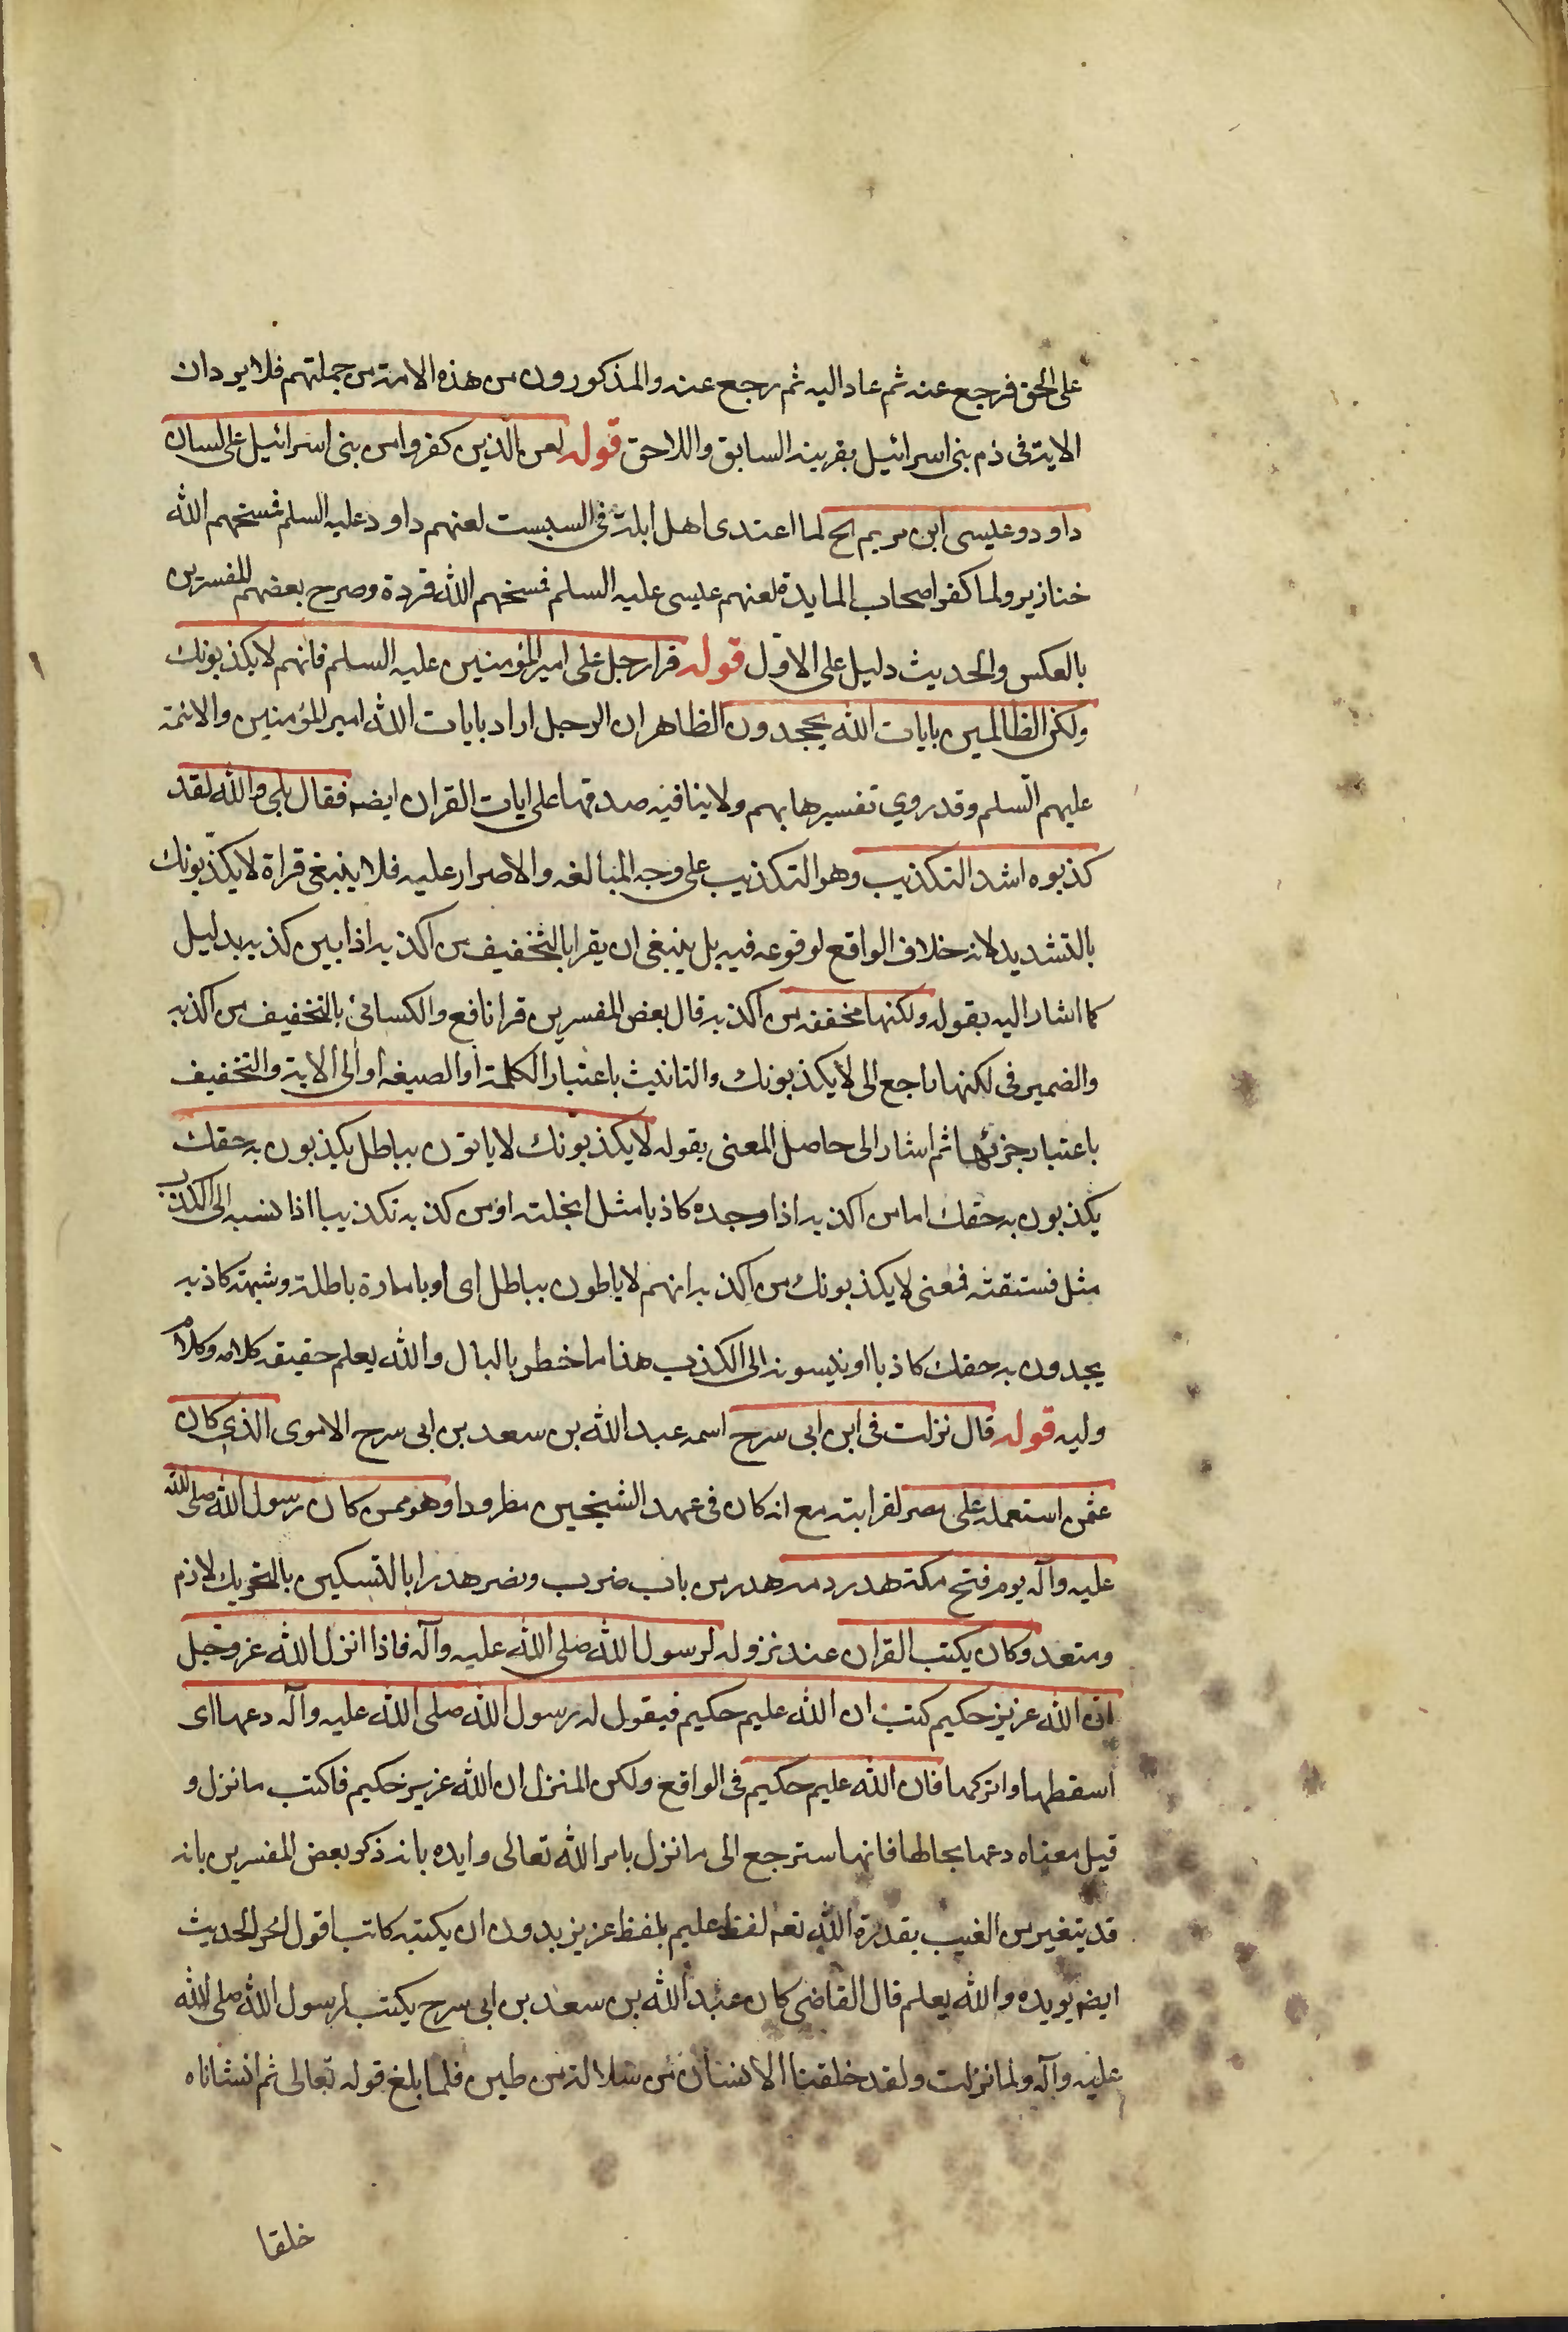 على الحق فرجع عنه ثم عاد اليه ثم رجع عنه والمذكورون من هذه الامة من جملتهم فلا يرد ان
الاية فى ذم بنى اسرائيل بقرينة السابق واللاحق قوله لعن الذين كفروا من بنى اسرائيل على لسان
داود وعيسى ابن مريم الخ لما اعتدى اهل ابلة فى السبت لعنهم داود عليه السلم فمسخهم الله
خنازير ولما كفر اصحاب المايدة لعنهم عيسى عليه السلم فمسخهم الله قردة وصرح بعضهم للمفسرين
بالعكس والحديث دليل على الاوّل قوله قرا رجل على امير المؤمنين عليه السلم فانهم لا يكذبونك
ولكن الظالمين بايات الله يجحدون الظاهر ان الرجل اراد بايات الله امير المؤمنين والائمة
عليهم السّلم وقد روي تفسيرها بهم ولا ينافيه صدقها على ايات القران ايضه فقال بلى والله لقد
كذبوه اشد التكذيب وهو التكذيب على وجه المبالغه والاصرار عليه فلا ينبغى قراة لا يكذّبونك
بالتشديد لانه خلاف الواقع لوقوعه فيه بل ينبغى ان يقرا بالتخفيف من اكذبه اذا بين كذبه بدليل
كما اشار اليه بقوله ولكنها مخففه من اكذبه قال بعض المفسرين قرا نافع والكسائى بالتخفيف من اكذبه
والضمير فى لكنها راجع الى لا يكذبونك والتانيث باعتبار الكلمة او الصيغه او الى الاية والتخفيف
باعتبار جزئها ثم اشار الى حاصل المعنى بقوله لا يكذبونك لا ياتون بباطل يكذبون به حقك
يكذبون به حقك اما من اكذبه اذا وجده كاذبا مثل ابخلته او من كذبه تكذيبا اذا نسبه الى الكذب
مثل فستقته فمعنى لا يكذبونك من اكذبه انهم لا ياطون بباطل اى او بامارة باطلة وشبهة كاذبه
يجدون به حقك كاذبا او ينسبونه الى الكذب هذا ما خطر بالبال والله يعلم حقيقه كلامه وكلام
وليه قوله قال نزلت فى ابن ابى سرح اسمه عبد الله بن سعد بن ابى سرح الاموى الذي كان
عثمن استعمله على مصر لقرابته مع انه كان فى عهد الشيخين مطرودا وهو ممن كان رسول الله صلى الله
عليه وآله يوم فتح مكة هدر دمه هدر من باب ضرب ونصر هدرا بالتسكين بالتحريك لازم
ومتعد وكان يكتب القران عند نزوله لرسول الله صلى الله عليه وآله فاذا انزل الله عز وجل
ان الله عزيز حكيم كتب ان الله عليم حكيم فيقول له رسول الله صلى الله عليه وآله دعها اى
اسقطها واتركها فان الله عليم حكيم فى الواقع ولكن المنزل ان الله عزيز حكيم فاكتب ما نزل و
قيل معناه دعها بحالها فانها سترجع الى ما نزل بامر الله تعالى وايده بانه ذكر بعض المفسرين بانه
قد يتغير من الغيب بقدرة الله تعه لفظ عليم بلفظ عزيز بدون ان يكتبه كاتب اقول اخر الحديث
ايضه يويده والله يعلم قال القاضى كان عبد الله بن سعد بن ابى سرح يكتب لرسول الله صلى الله
عليه وآله ولما نزلت ولقد خلقنا الانسان من سلالة من طين فلما بلغ قوله تعالى ثم انشاناه
خلقا